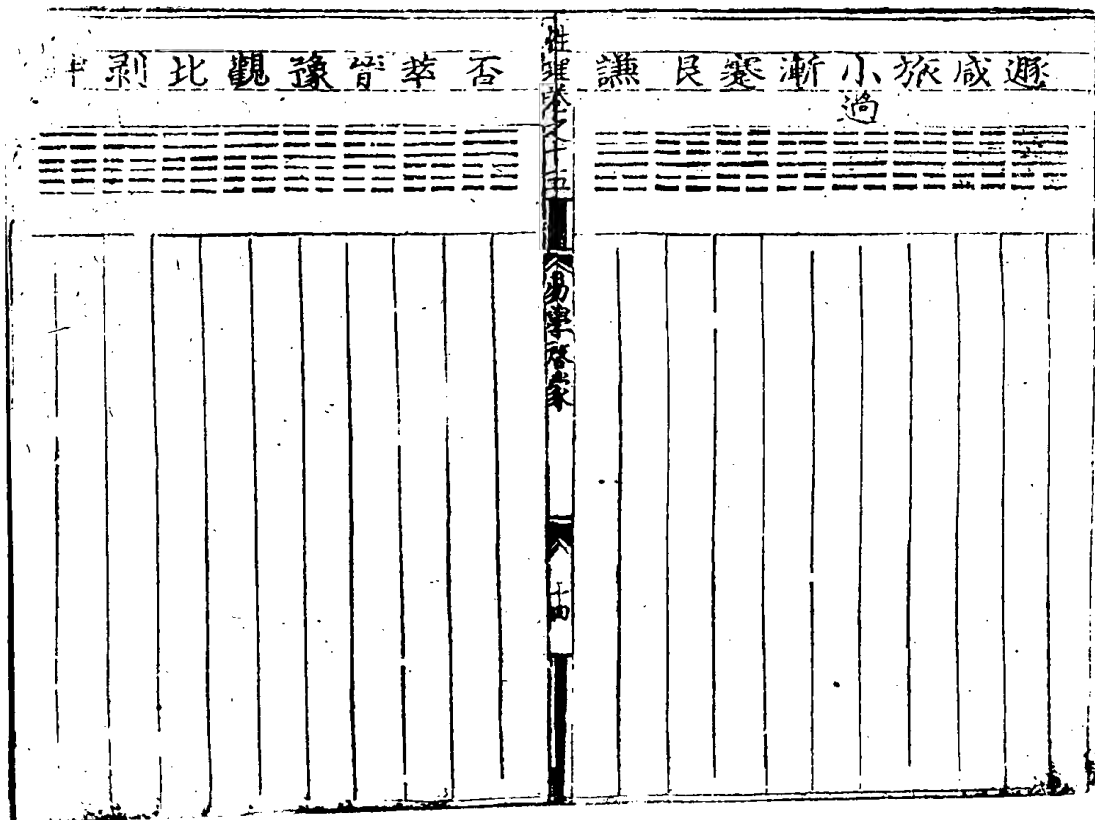 遯 咸 旅 小過 漸 蹇 艮 謙
性理卷之十五
易學啓蒙
十四
否 萃 晉 豫 觀 比 剥